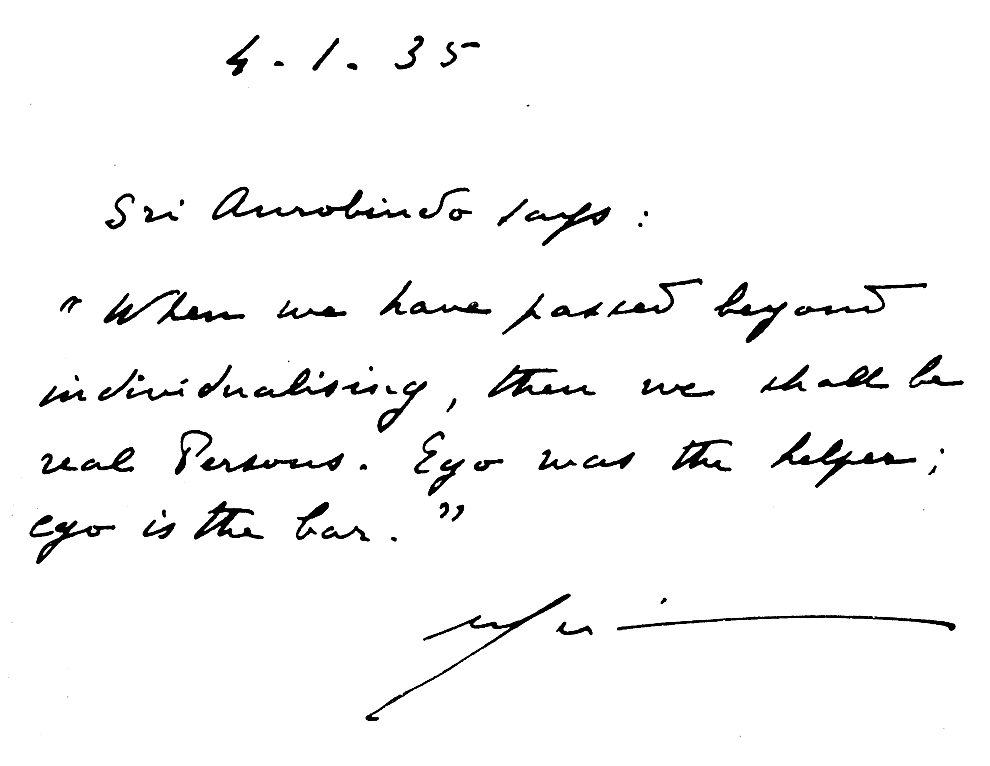 4.1.35
Sri Aurobindo says:
"When we have passed beyond
individualising, then we shall be
real Persons. Ego was the helper;
ego is the bar."